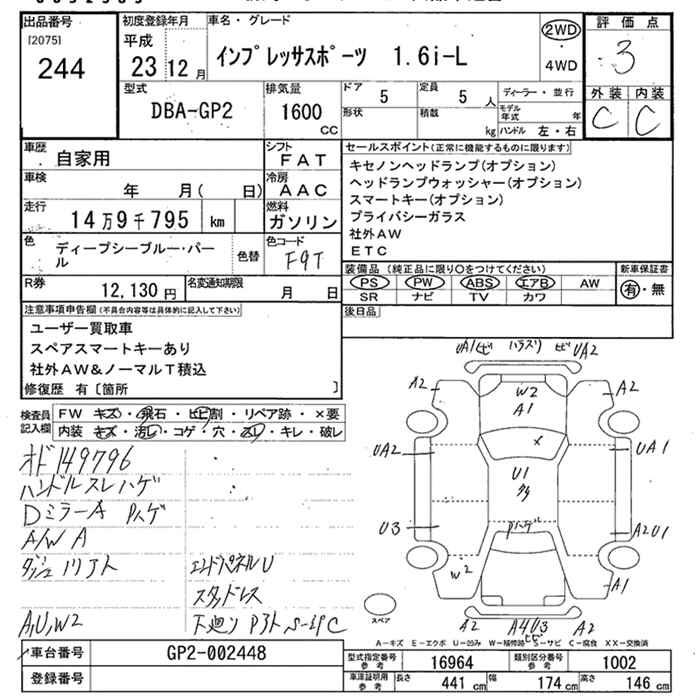 出品番号
[2075]
244
初度登録年月
平成
23 12 月
車名・グレード
インプレッサスポーツ 1.6i-L
2WD
・
4WD
評価点
3
外装 内装
C C
型式
DBA-GP2
排気量
1600
CC
ドア 5
定員 5 人
形状
積載 kg
ディーラー・並行
モデル年式 年
ハンドル 左・右
車歴
自家用
シフト
FAT
車検
年 月( 日)
冷房
AAC
走行
14万9千795 km
燃料
ガソリン
色
ディープシーブルー・パール
色替
色コード
F9T
R券
12,130円
名変通知期限
月 日
セールスポイント(正常に機能するものに限ります)
キセノンヘッドランプ(オプション)
ヘッドランプウォッシャー(オプション)
スマートキー(オプション)
プライバシーガラス
社外AW
ETC
装備品(純正品に限り○をつけてください)
PS PW ABS エアB AW
SR ナビ TV カワ
新車保証書
有・無
後日品
注意事項申告欄(不具合内容等は具体的に記入して下さい)
ユーザー買取車
スペアスマートキーあり
社外AW&ノーマルT積込
修復歴 有[箇所 ]
検査員記入欄
FW キズ・飛石・ヒビ割・リペア跡・×要
内装 キズ・汚レ・コゲ・穴・スレ・キレ・破レ
オド149796
ハンドルスレハゲ
DミラーA Pハゲ
A/W A
ダッシュ ソリアト
エンドパネルU
スタッドレス
A,U,W2
下廻り Pアト,S-小P C
UA1(ビ ハラスリ ビ UA2
A2
W2
A1
A2
X
UA2
UA1
U1
多
U3
Pハゲ
A2U1
W2
A1
スペア
A2
A4U3
ヒビ
A2
A-キズ E-エクボ U-凹み W-補修跡 S-サビ C-腐食 XX-交換済
車台番号
GP2-002448
登録番号
型式指定番号 参考
16964
類別区分番号 参考
1002
車庫証明用 参考
長さ 441 cm
幅 174 cm
高さ 146 cm